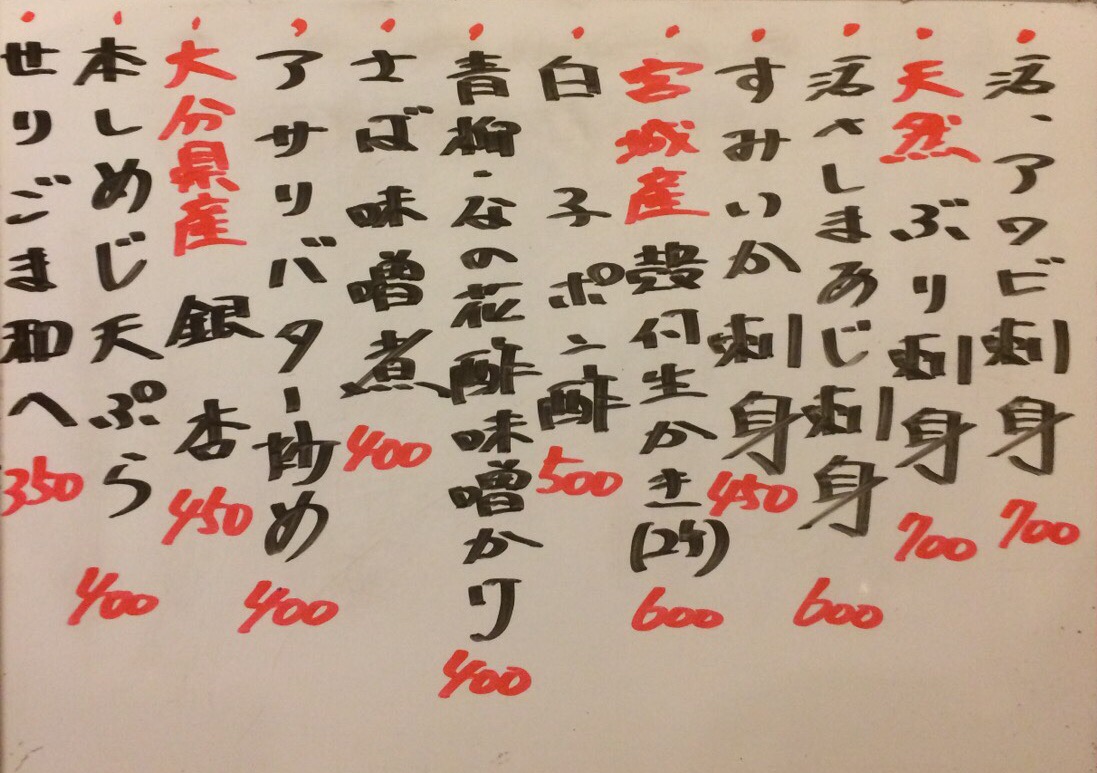 活、アワビ刺身 700
天然 ぶり刺身 700
活きしまあじ刺身 600
すみいか刺身 450
宮城産 殻付生かき(2ケ) 600
白子ポン酢 500
青柳・なの花酢味噌かけ 400
さば味噌煮 400
アサリバター炒め 400
大分県産 銀杏 450
本しめじ天ぷら 400
せりごま和へ 350